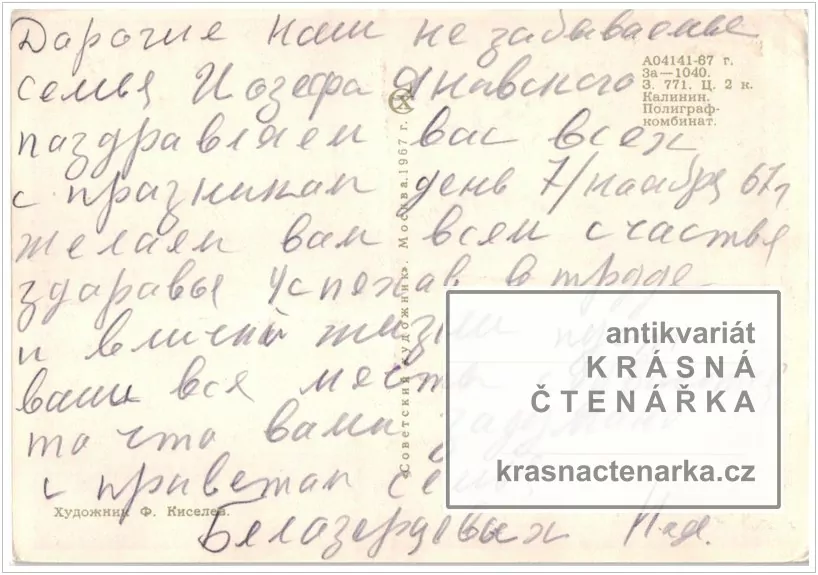 Дарогие наш не забываемые
семья Иозефа Яновского
паздравляем вас всех
с празникам день 7/наября 67г
желаем вам всем счастья
здаравья успехав в труде
и вличной жизни
ваши вся
то что вами
с приветам
Белазерцевых Надя.
А04141-67 г.
За—1040.
З. 771. Ц. 2 к.
Калинин.
Полиграф-
комбинат.
«Советский художник». Москва. 1967 г.
Художник Ф. Киселев.
antikvariát
KRÁSNÁ
ČTENÁŘKA
krasnactenarka.cz